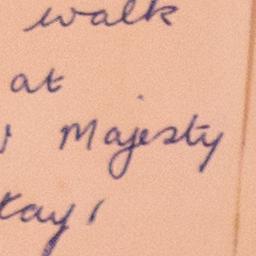 walk
at
Majesty